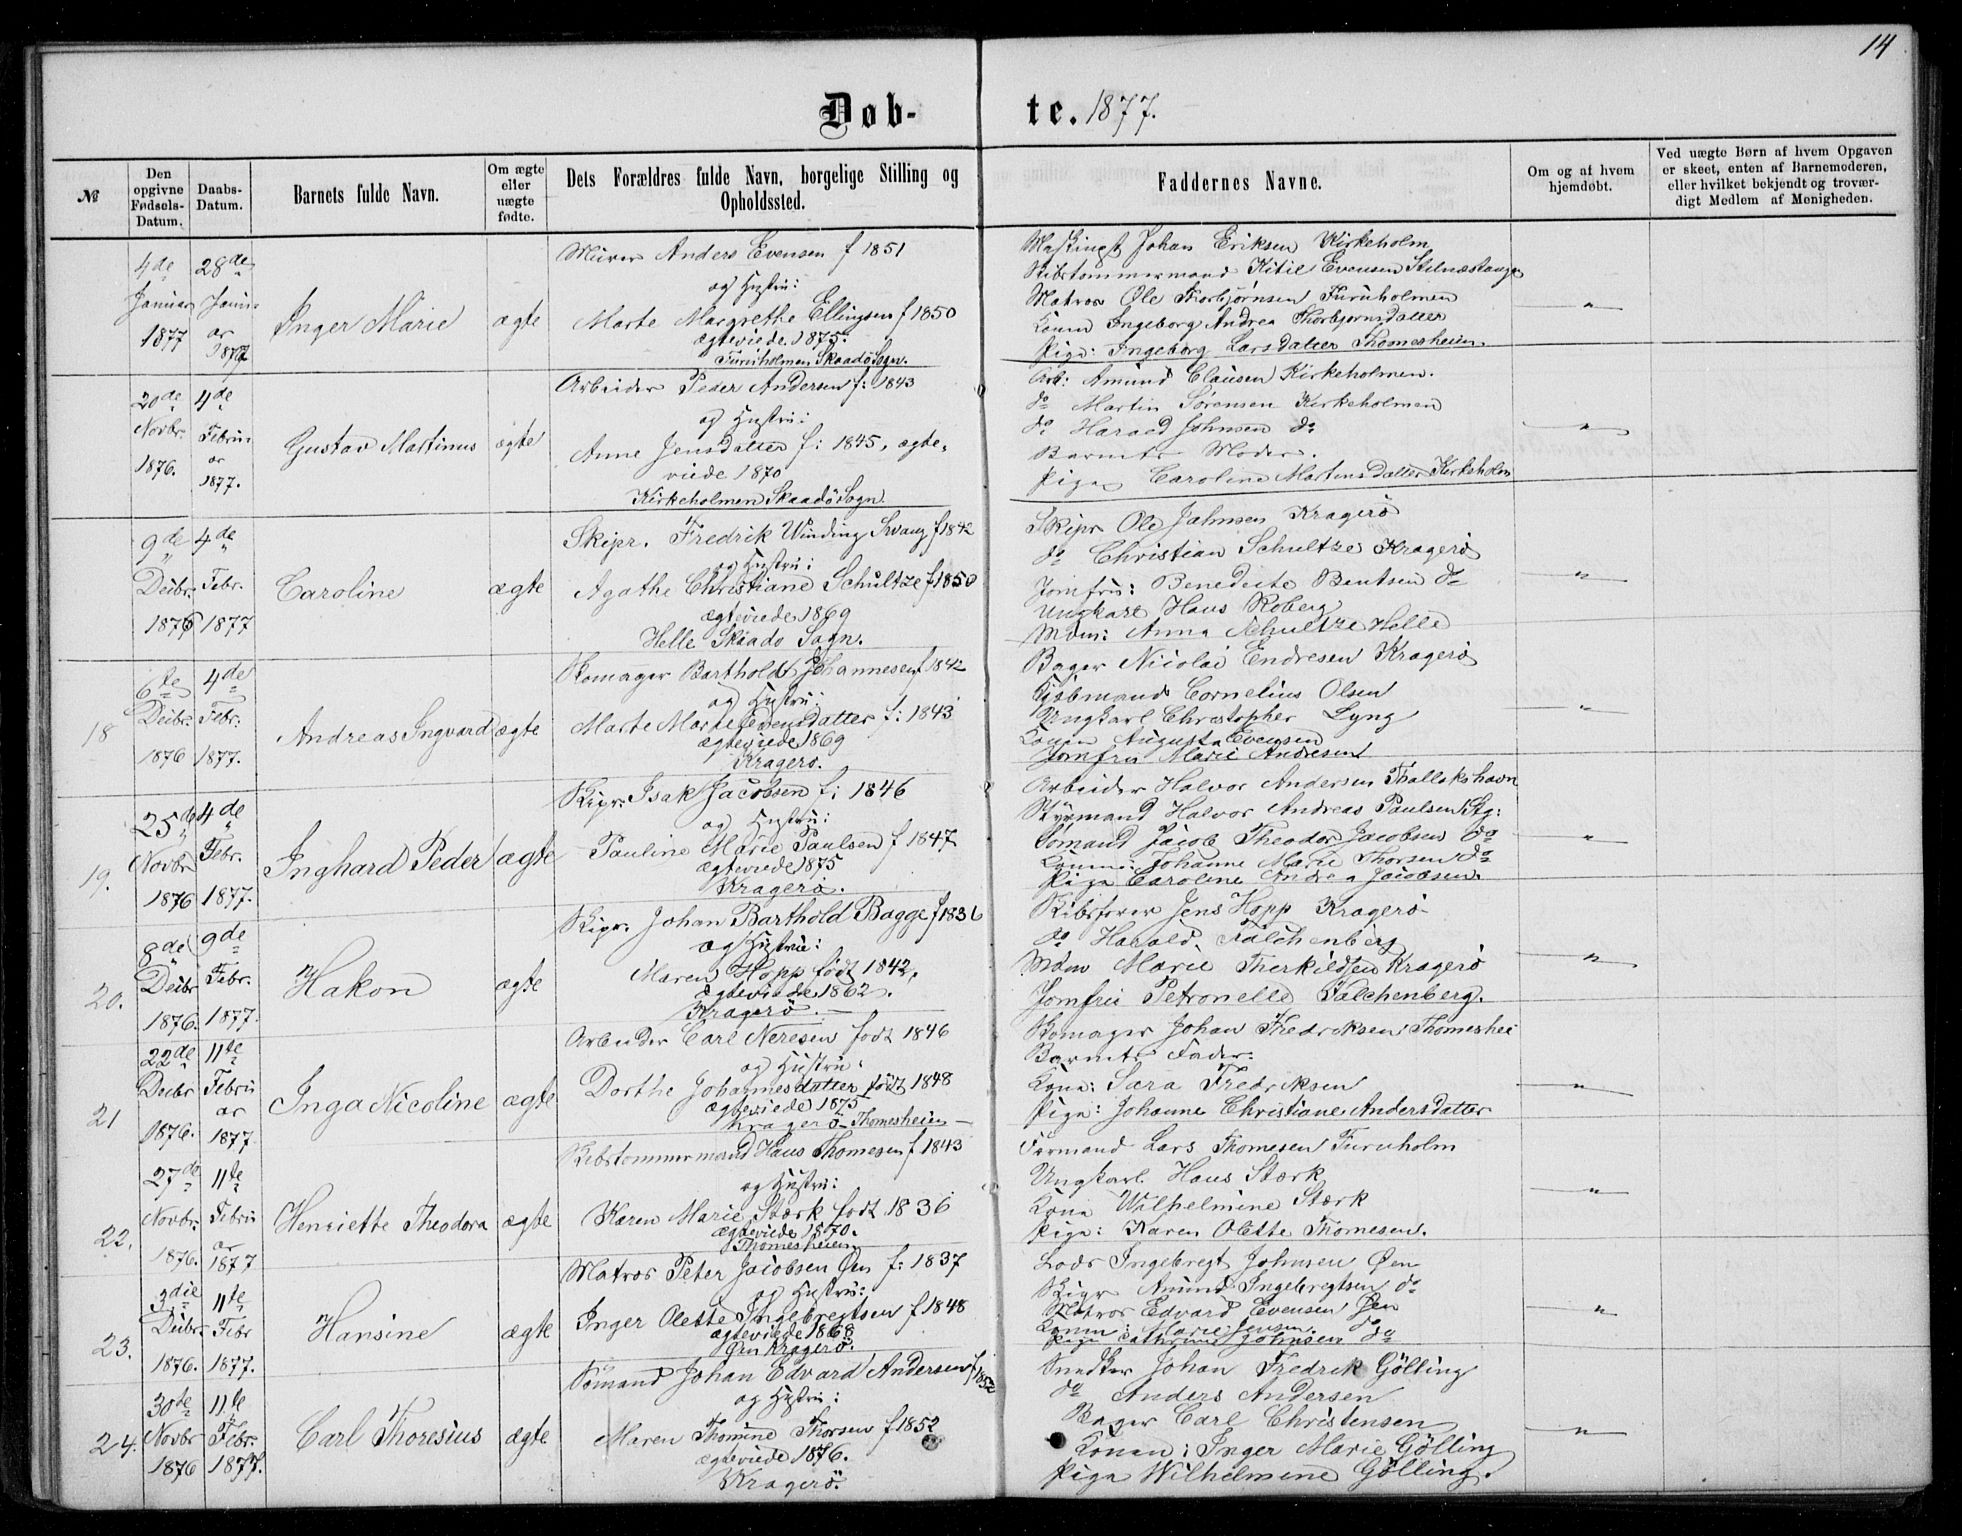 14
Døb-te. 1877.
№
Den opgivne Fødsels-Datum.
Daabs-Datum.
Barnets fulde Navn.
Om ægte eller uægte fødte.
Dets Forældres fulde Navn, borgelige Stilling og Opholdssted.
Faddernes Navne.
Om og af hvem hjemdøbt.
Ved uægte Børn af hvem Opgaven er skeet, enten af Barnemoderen, eller hvilket bekjendt og trovær-digt Medlem af Menigheden.
4de Januar 1877
28de Janu-ar 1877
Inger Marie
ægte
Murer Anders Evensen f 1851
og Hustru:
Marte Margrethe Ellingsen f 1850
ægteviede 1875.
Furuholmen Skaadö Sogn.
Johan Eriksen Kirkeholm
Skibstømmermand Kitil Evensen
Matros Ole Thorbjørnsen Furuholmen
Konen Ingeborg Andrea Thorbjørnsdatter
Pige: Ingeborg Larsdatter Thomesheien.
"
20de Novbr. 1876.
4de Februar 1877.
Gustav Martinus
ægte
Arbeider Peder Andersen f: 1843
og Hustru:
Anne Jensdatter f: 1845, ægte-
viede 1870
Kirkeholmen Skaadö Sogn.
Arb: Amund Clausen Kirkeholmen.
do Martin Sørensen Kirkeholmen
do Harald Johnsen do
Barnets Moder.
Pige Caroline Martinsdatter Kirkeholm
"
9de Decbr. 1876
4de Febr. 1877
Caroline
ægte
Skipr. Fredrik Winding Svang f 1842
og Hustru:
Agathe Christiane Schultze f 1850
ægteviede 1869
Helle Skaadö Sogn.
Skipr Ole Johnsen Kragerö
do Christian Schultze Kragerö
Jomfru: Benedicte Bentsen do
Ungkarl Hans Roberg
Mdm: Anna Schultze Helle
"
18
6te Decbr. 1876
4de Febr. 1877.
Andreas Ingvard
ægte
Skomager Barthold Johannesen f 1842
og Hustru:
Marte Marie Evensdatter f: 1843
ægteviede 1869
Kragerö.
Bager Nicolai Endresen Kragerö
Kjøbmand Cornelius Olsen
Ungkarl Christopher Lyng
Konen Augusta Evensen
Jomfru Marie Andresen
"
19.
25de Novbr 1876
4de Febr. 1877.
Inghard Peder
ægte
Skipr. Isak Jacobsen f: 1846
og Hustru:
Pauline Marie Paulsen f 1847
ægteviede 1875
Kragerö.
Arbeider Halvor Andersen Thallakshavn
Styrmand Halvor Andreas Paulsen
Sömand Jacob Theodor Jacobsen do
Konen: Johanne Marie Thorsen do
Pige Caroline Andrea Jacobsen.
"
20.
8de Decbr 1876.
9de Febr. 1877.
Hakon
ægte
Skipr. Johan Barthold Bagge f 1836
og Hustru:
Maren Hopp født 1842,
ægteviede 1862.
Kragerö.
Skibsfører Jens Hopp Kragerö
do Harald Falchenberg
Mdm Marie Therkildsen Kragerö
Jomfru Petronelle Falchenberg.
"
21
22de Decbr 1876.
11te Februar 1877.
Inga Nicoline
ægte
Arbeider Carl Neresen født 1846
og Hustru:
Dorthe Johannesdatter født 1848
ægteviede 1875
Kragerö Thomesheien
Skomager Johan Fredriksen Thomeshei
Barnets Fader.
Kone: Sara Fredriksen
Pige: Johanne Christiane Andersdatter
"
22.
27de Novbr. 1876.
11te Februar 1877
Henriette Theodora
ægte
Skibstømmermand Hans Thomesen f 1843
og Hustru:
Karen Marie Stærk født 1836
ægteviede 1870.
Thomesheien
Formand Lars Thomesen Furuholm
Ungkarl Hans Stærk
Kone Wilhelmine Stærk
Pige: Karen Olette Thomesen.
"
23.
3die Decbr 1876.
11te Febr 1877.
Hansine
ægte
Matros Peter Jacobsen Øen f: 1837
og Hustru:
Inger Olette Ingebregtsen f 1848
ægteviede 1868
Øen Kragerö.
Lods Ingebregt Johnsen Øen
Skipr Amund Ingebregtsen do
Matros Edvard Evensen Øen
Konen: Marie Jensen. do
Pige Cathrine Johnsen do
"
24.
30te Novbr 1876
11te Febr. 1877.
Carl Thoresius
ægte
Sömand Johan Edvard Andersen f 1852
og Hustru:
Maren Thomine Thorsen f 1852
ægteviede 1876.
Kragerö.
Snedker Johan Fredrik Gölling
do Anders Andersen
Bager Carl Christensen
Konen: Inger Marie Gölling
Pige Wilhelmine Gölling.
"